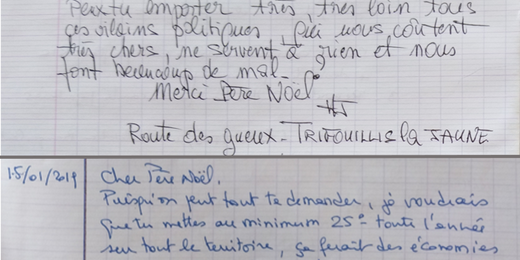 Peux tu emporter très, très loin tous
ces vilains politiques, qui nous coûtent
très chers, ne servent à rien et nous
font beaucoup de mal.
Merci Père Noël
Route des gueux - TRIFOUILLIS la JAUNE
15/01/2019
Cher Père Noël,
Puisqu'on peut tout te demander, je voudrais
que tu mettes au minimum 25° toute l'année
sur tout le territoire, ça ferait des économies